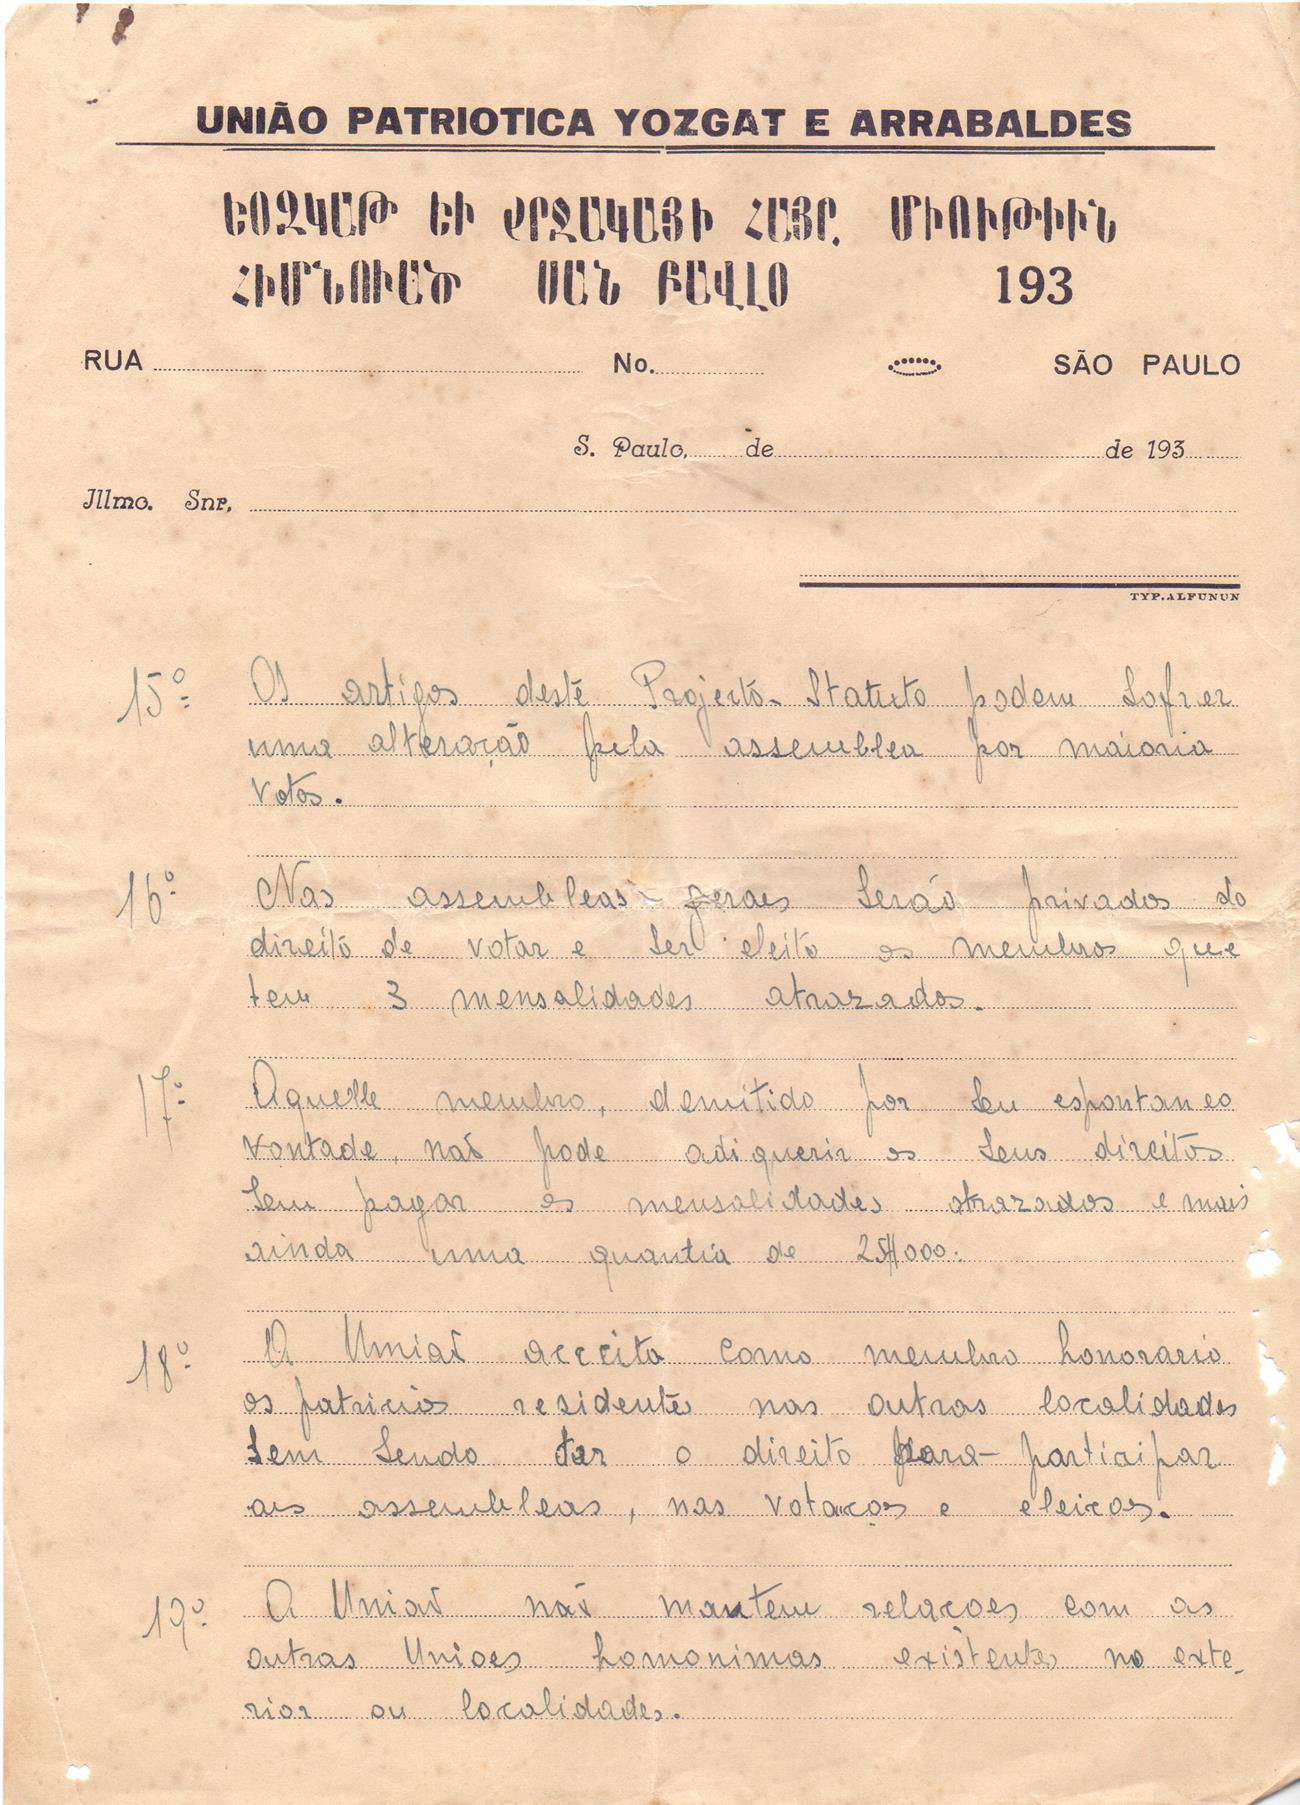 UNIÃO PATRIOTICA YOZGAT E ARRABALDES
ԵՈԶԿԱԹ ԵՒ ՇՐՋԱԿԱՅԻ ՀԱՅՐ. ՄԻՈՒԹԻՒՆ
ՀԻՄՆՈՒԱԾ ՍԱՆ ԲԱՎԼՕ 193
RUA No. SÃO PAULO
S. Paulo, de de 193
Illmo. Snr.
TYP. ALFUNUN
15º Os artigos deste Projecto-Statuto podem sofrer
uma alteração pela assemblea por maioria
votos.
16º Nas assembleas geraes serão privados do
direito de votar e ser eleito os membros que
tem 3 mensalidades atrazados.
17º Aquelle membro, demitido por seu espontaneo
vontade, naõ pode adiquerir os seus direitos
sem pagar os mensalidades atrazados e mais
ainda uma quantia de 25$000.
18º A Uniaõ acceita como membro honorario
os patricios residentes nas outras localidades
sem sendo ter o direito para participar
as assembleas, nas votaços e eleicoes.
19º A Uniaõ naõ mantem relacoes com as
outras Unioes homonimas existentes no exte-
rior ou localidades.